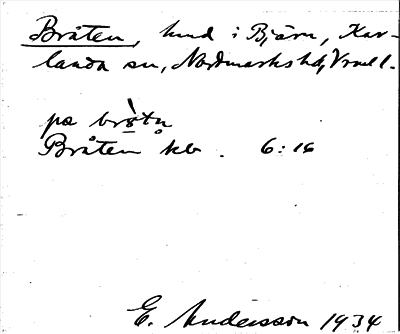 Bråten, hmd i Bjärn, Kar-
landa sn, Nordmarks hd, Vrml.
på brå̀tn̥
Bråten kb. 6:16
E. Andersson 1934